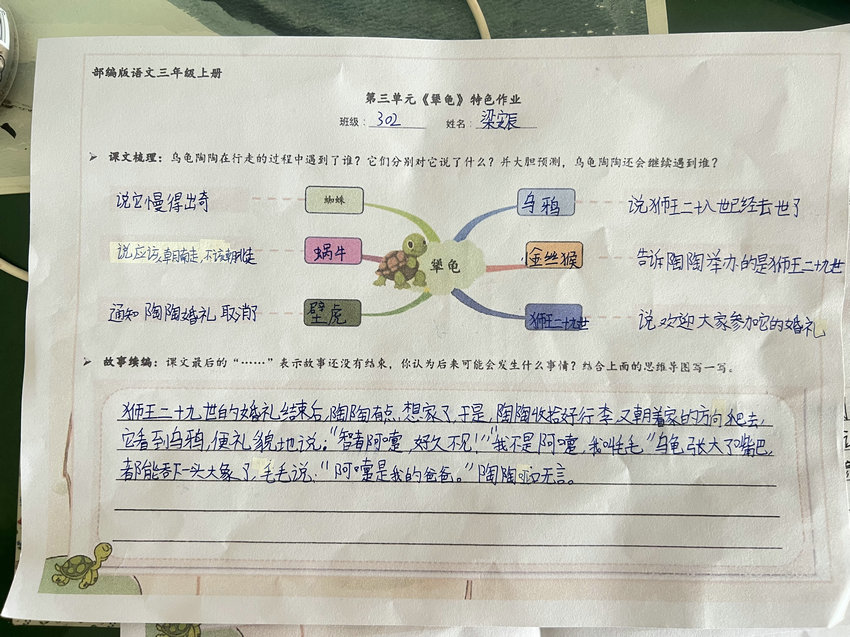 部编版语文三年级上册
第三单元《犟龟》特色作业
班级：302 姓名：梁安辰
➢ 课文梳理：乌龟陶陶在行走的过程中遇到了谁？它们分别对它说了什么？并大胆预测，乌龟陶陶还会继续遇到谁？
说它慢得出奇 蜘蛛 乌鸦 说狮王二十八世已经去世了
说应该朝南走，不该朝北走 蜗牛 犟龟 金丝猴 告诉陶陶举办的是狮王二十九世
通知陶陶婚礼取消了 壁虎 狮王二十九世 说欢迎大家参加它的婚礼
➢ 故事续编：课文最后的“……”表示故事还没有结束，你认为后来可能会发生什么事情？结合上面的思维导图写一写。
狮王二十九世的婚礼结束后，陶陶有点想家了，于是，陶陶收拾好行李又朝着家的方向爬去，
它看到乌鸦，便礼貌地说：“智者阿嚏，好久不见！”“我不是阿嚏，我叫毛毛”乌龟张大了嘴巴，
都能吞下一头大象了，毛毛说：“阿嚏是我的爸爸。”陶陶哑口无言。